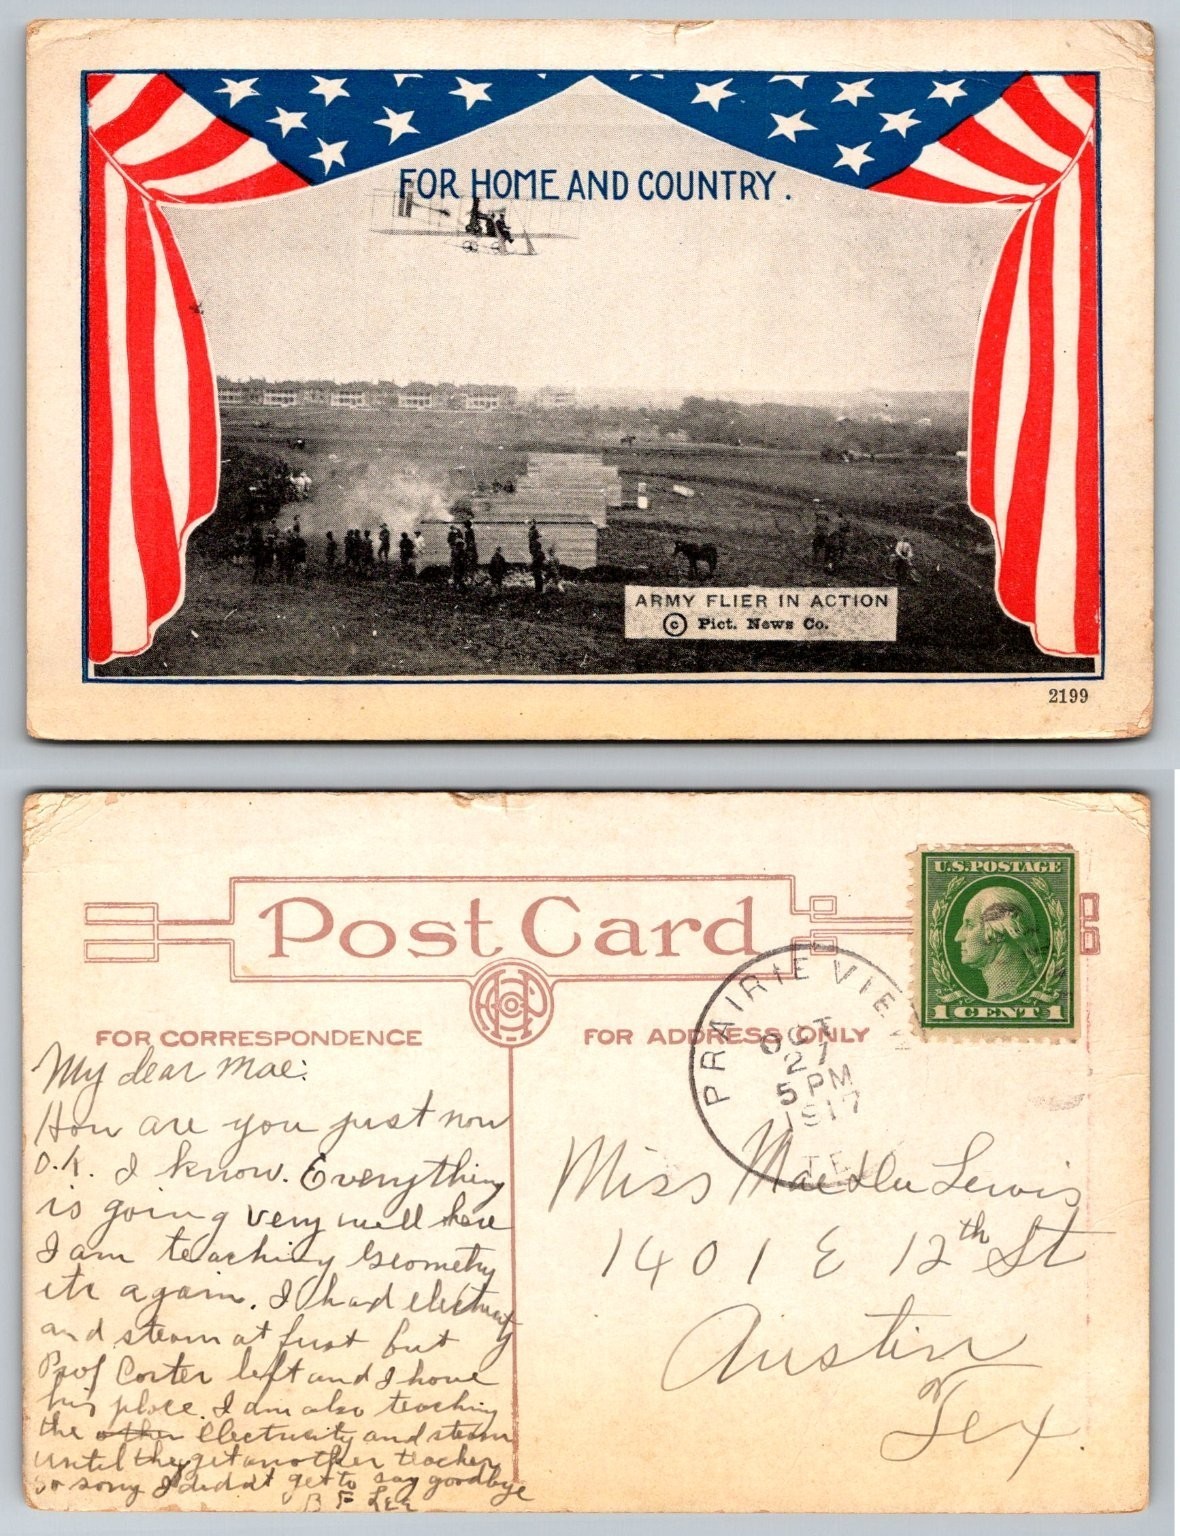 FOR HOME AND COUNTRY.
ARMY FLIER IN ACTION
© Pict. News Co.
2199
Post Card
U.S. POSTAGE
1 CENT 1
FOR CORRESPONDENCE
FOR ADDRESS ONLY
PRAIRIE VIEW
OCT
27
5 PM
1917
TEX
My dear Mae:
How are you just now
O.K. I know. Everything
is going very well here
I am teaching Geometry
etc again. I had electricity
and steam at first but
Prof Carter left and I have
his place. I am also teaching
the other electricity and steam
until they get another teacher
so sorry I didn't get to say goodbye
B F Lee
Miss Lewis
1401 E 12th St
Austin
Tex.